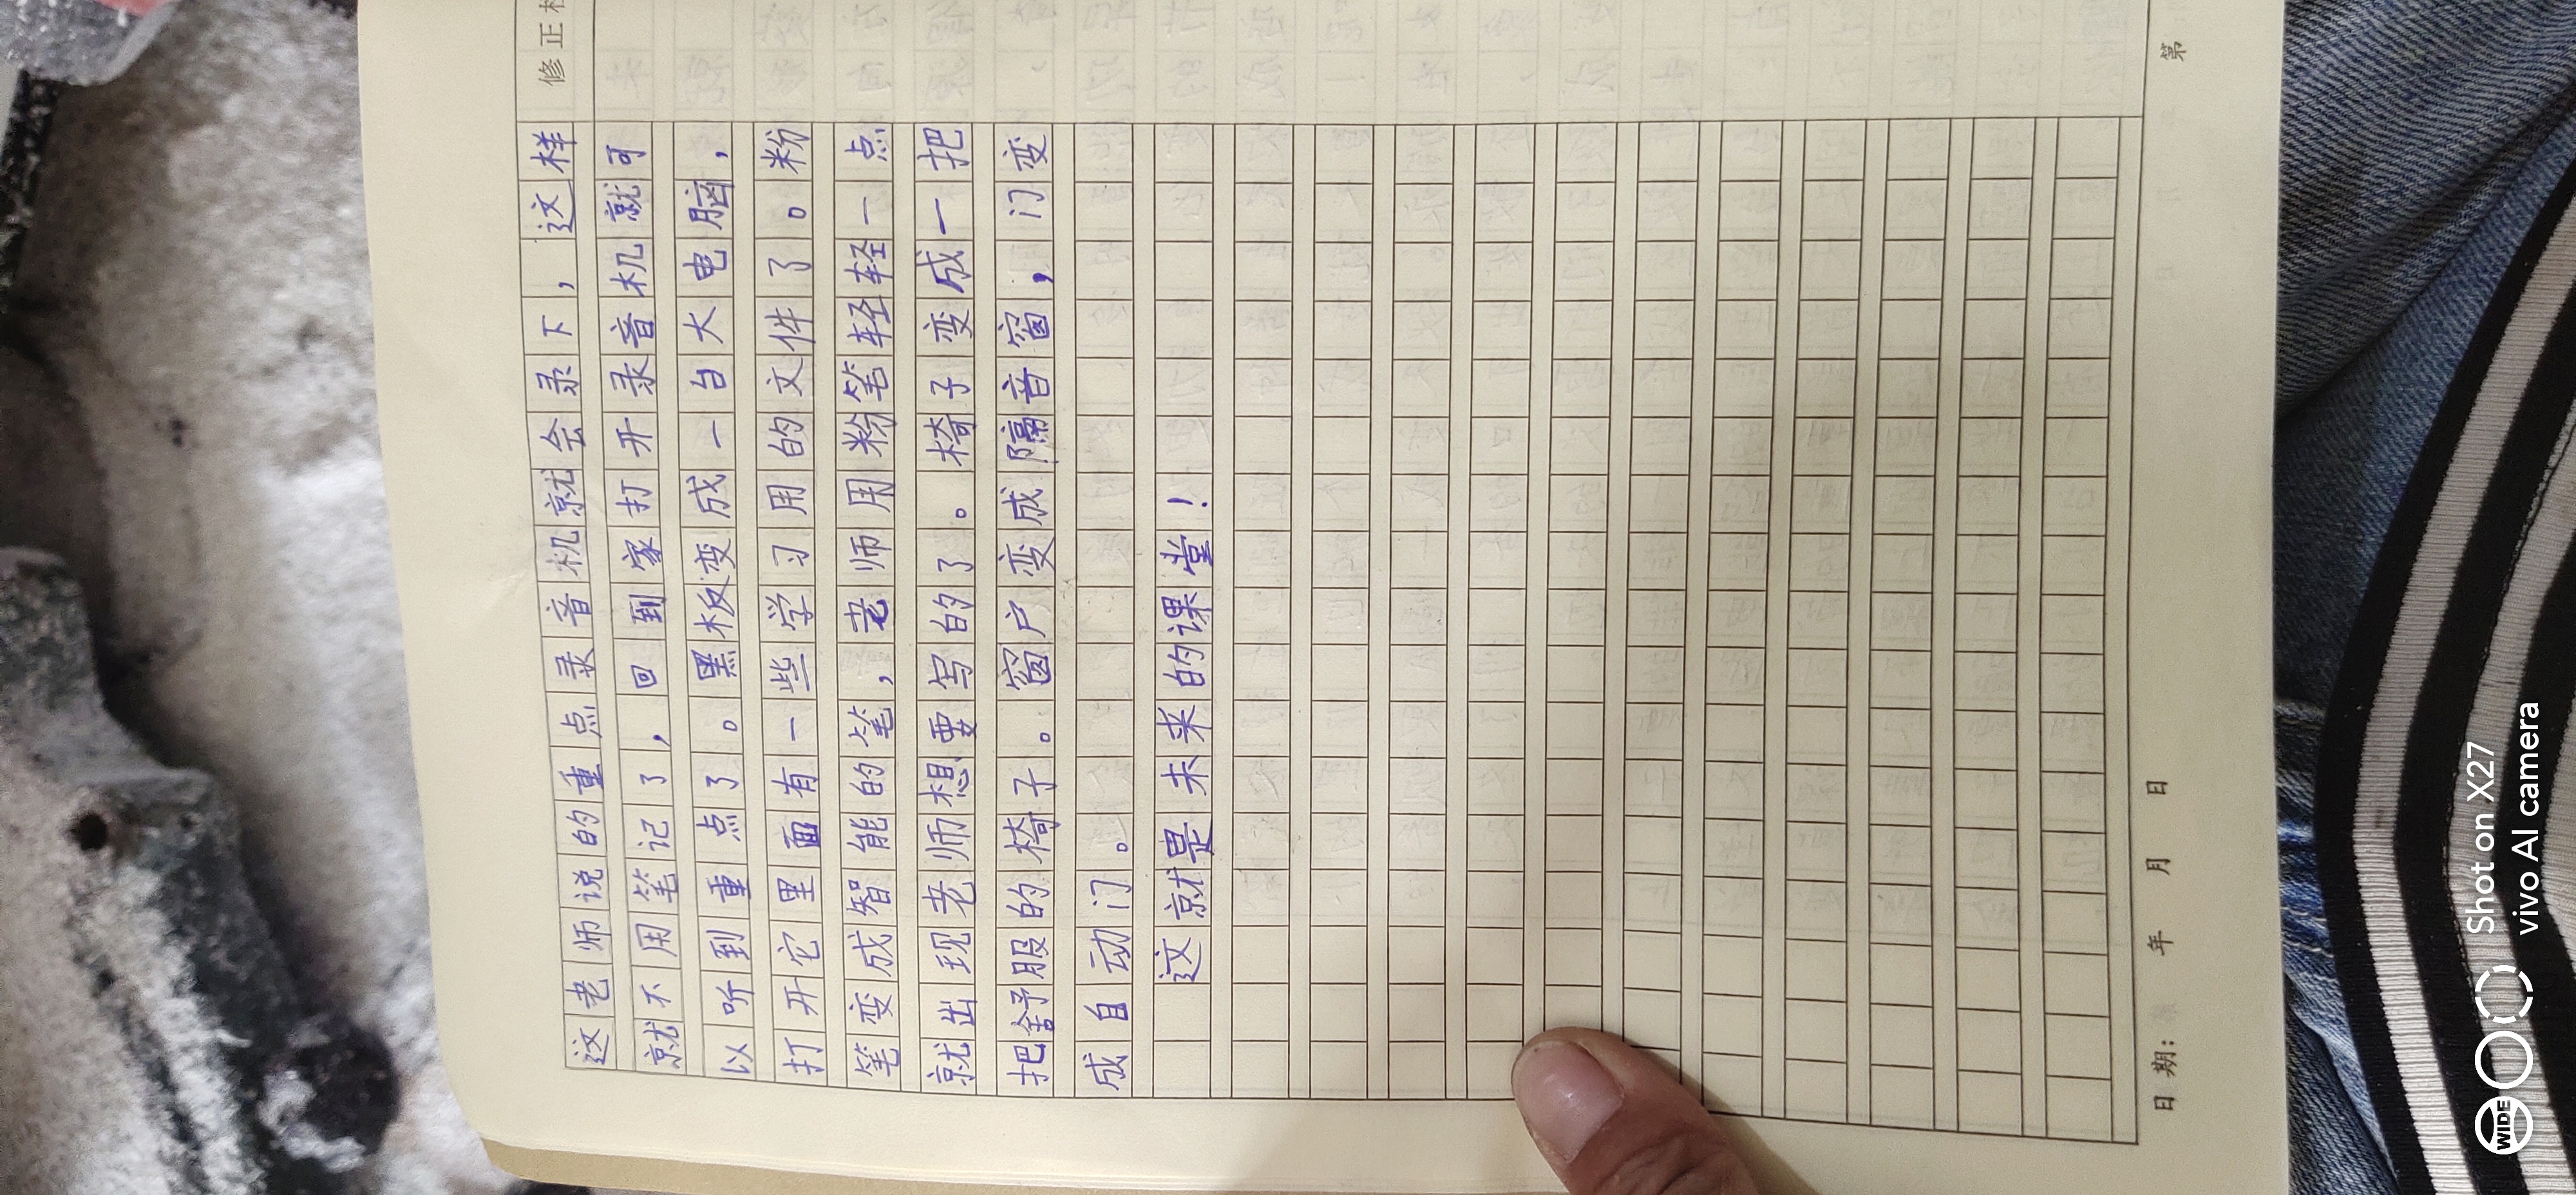 修正栏
这老师说的重点录音机就会录下，这样
就不用笔记了，回到家打开录音机就可
以听到重点了。黑板变成一台大电脑，
打开它里面有一些学习用的文件了。粉
笔变成智能的笔，老师用粉笔轻轻一点
就出现老师想要写的了。椅子变成一把
把舒服的椅子。窗户变成隔音窗，门变
成自动门。
这就是未来的课堂！
日期： 年 月 日 第
Shot on X27
vivo AI camera
WIDE